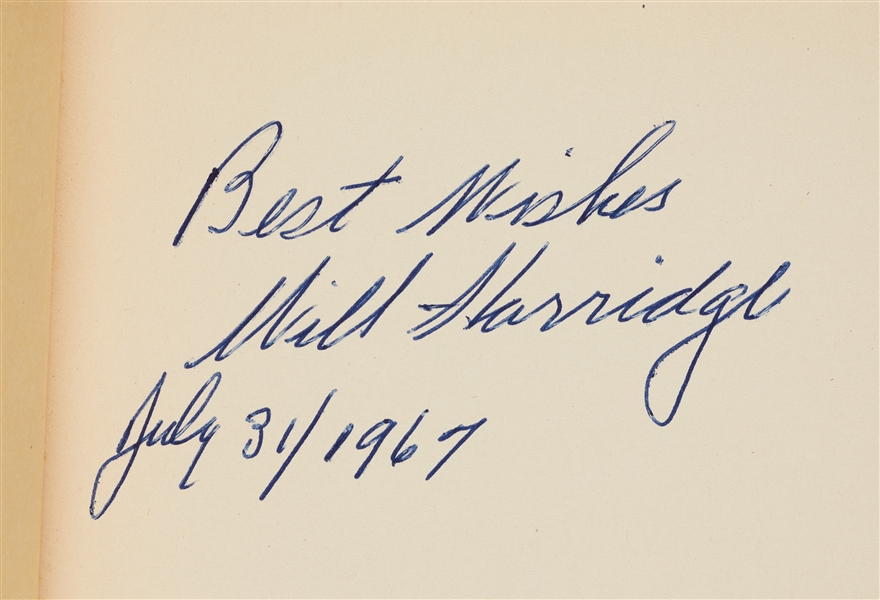 Best Wishes
Will Harridge
July 31/1967